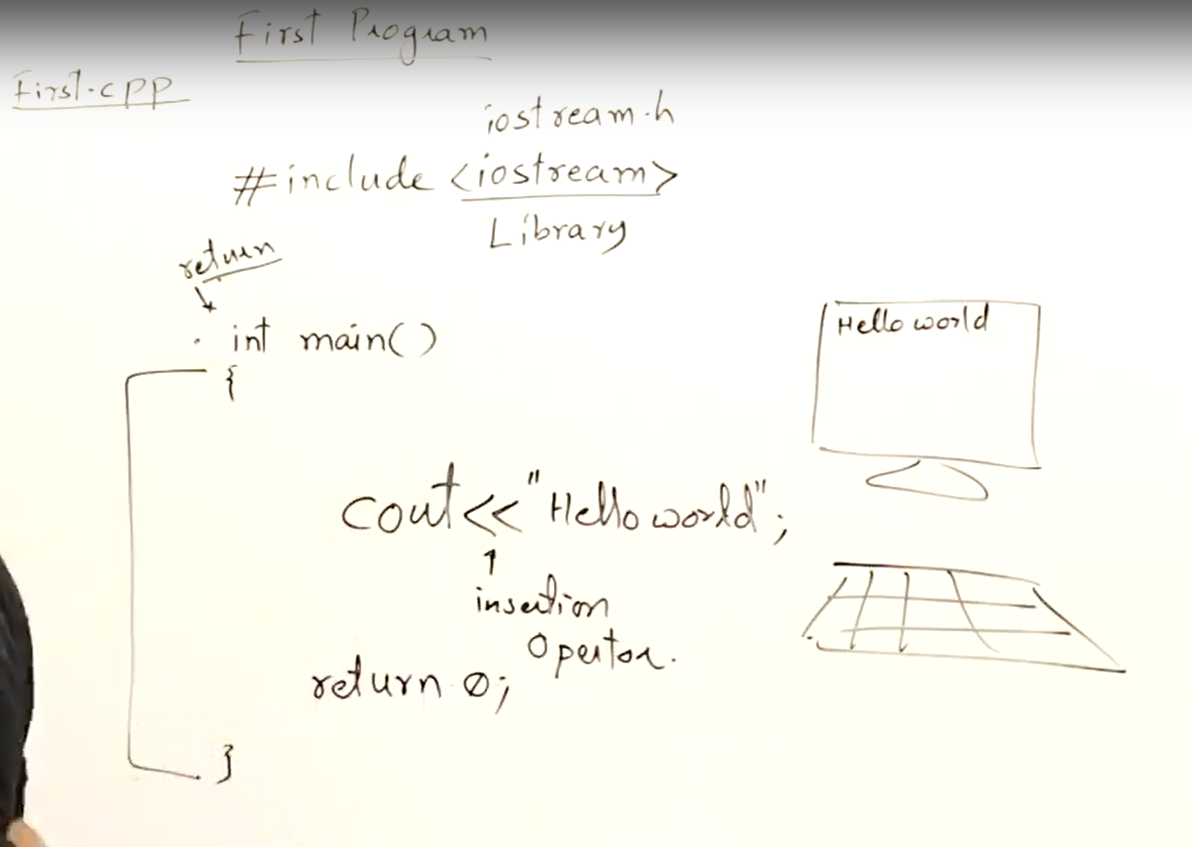 First Program
First.cpp
iostream.h
#include <iostream>
Library
return
int main()
{
Hello world
cout<<"Hello world";
insertion
Opertor.
return 0;
}